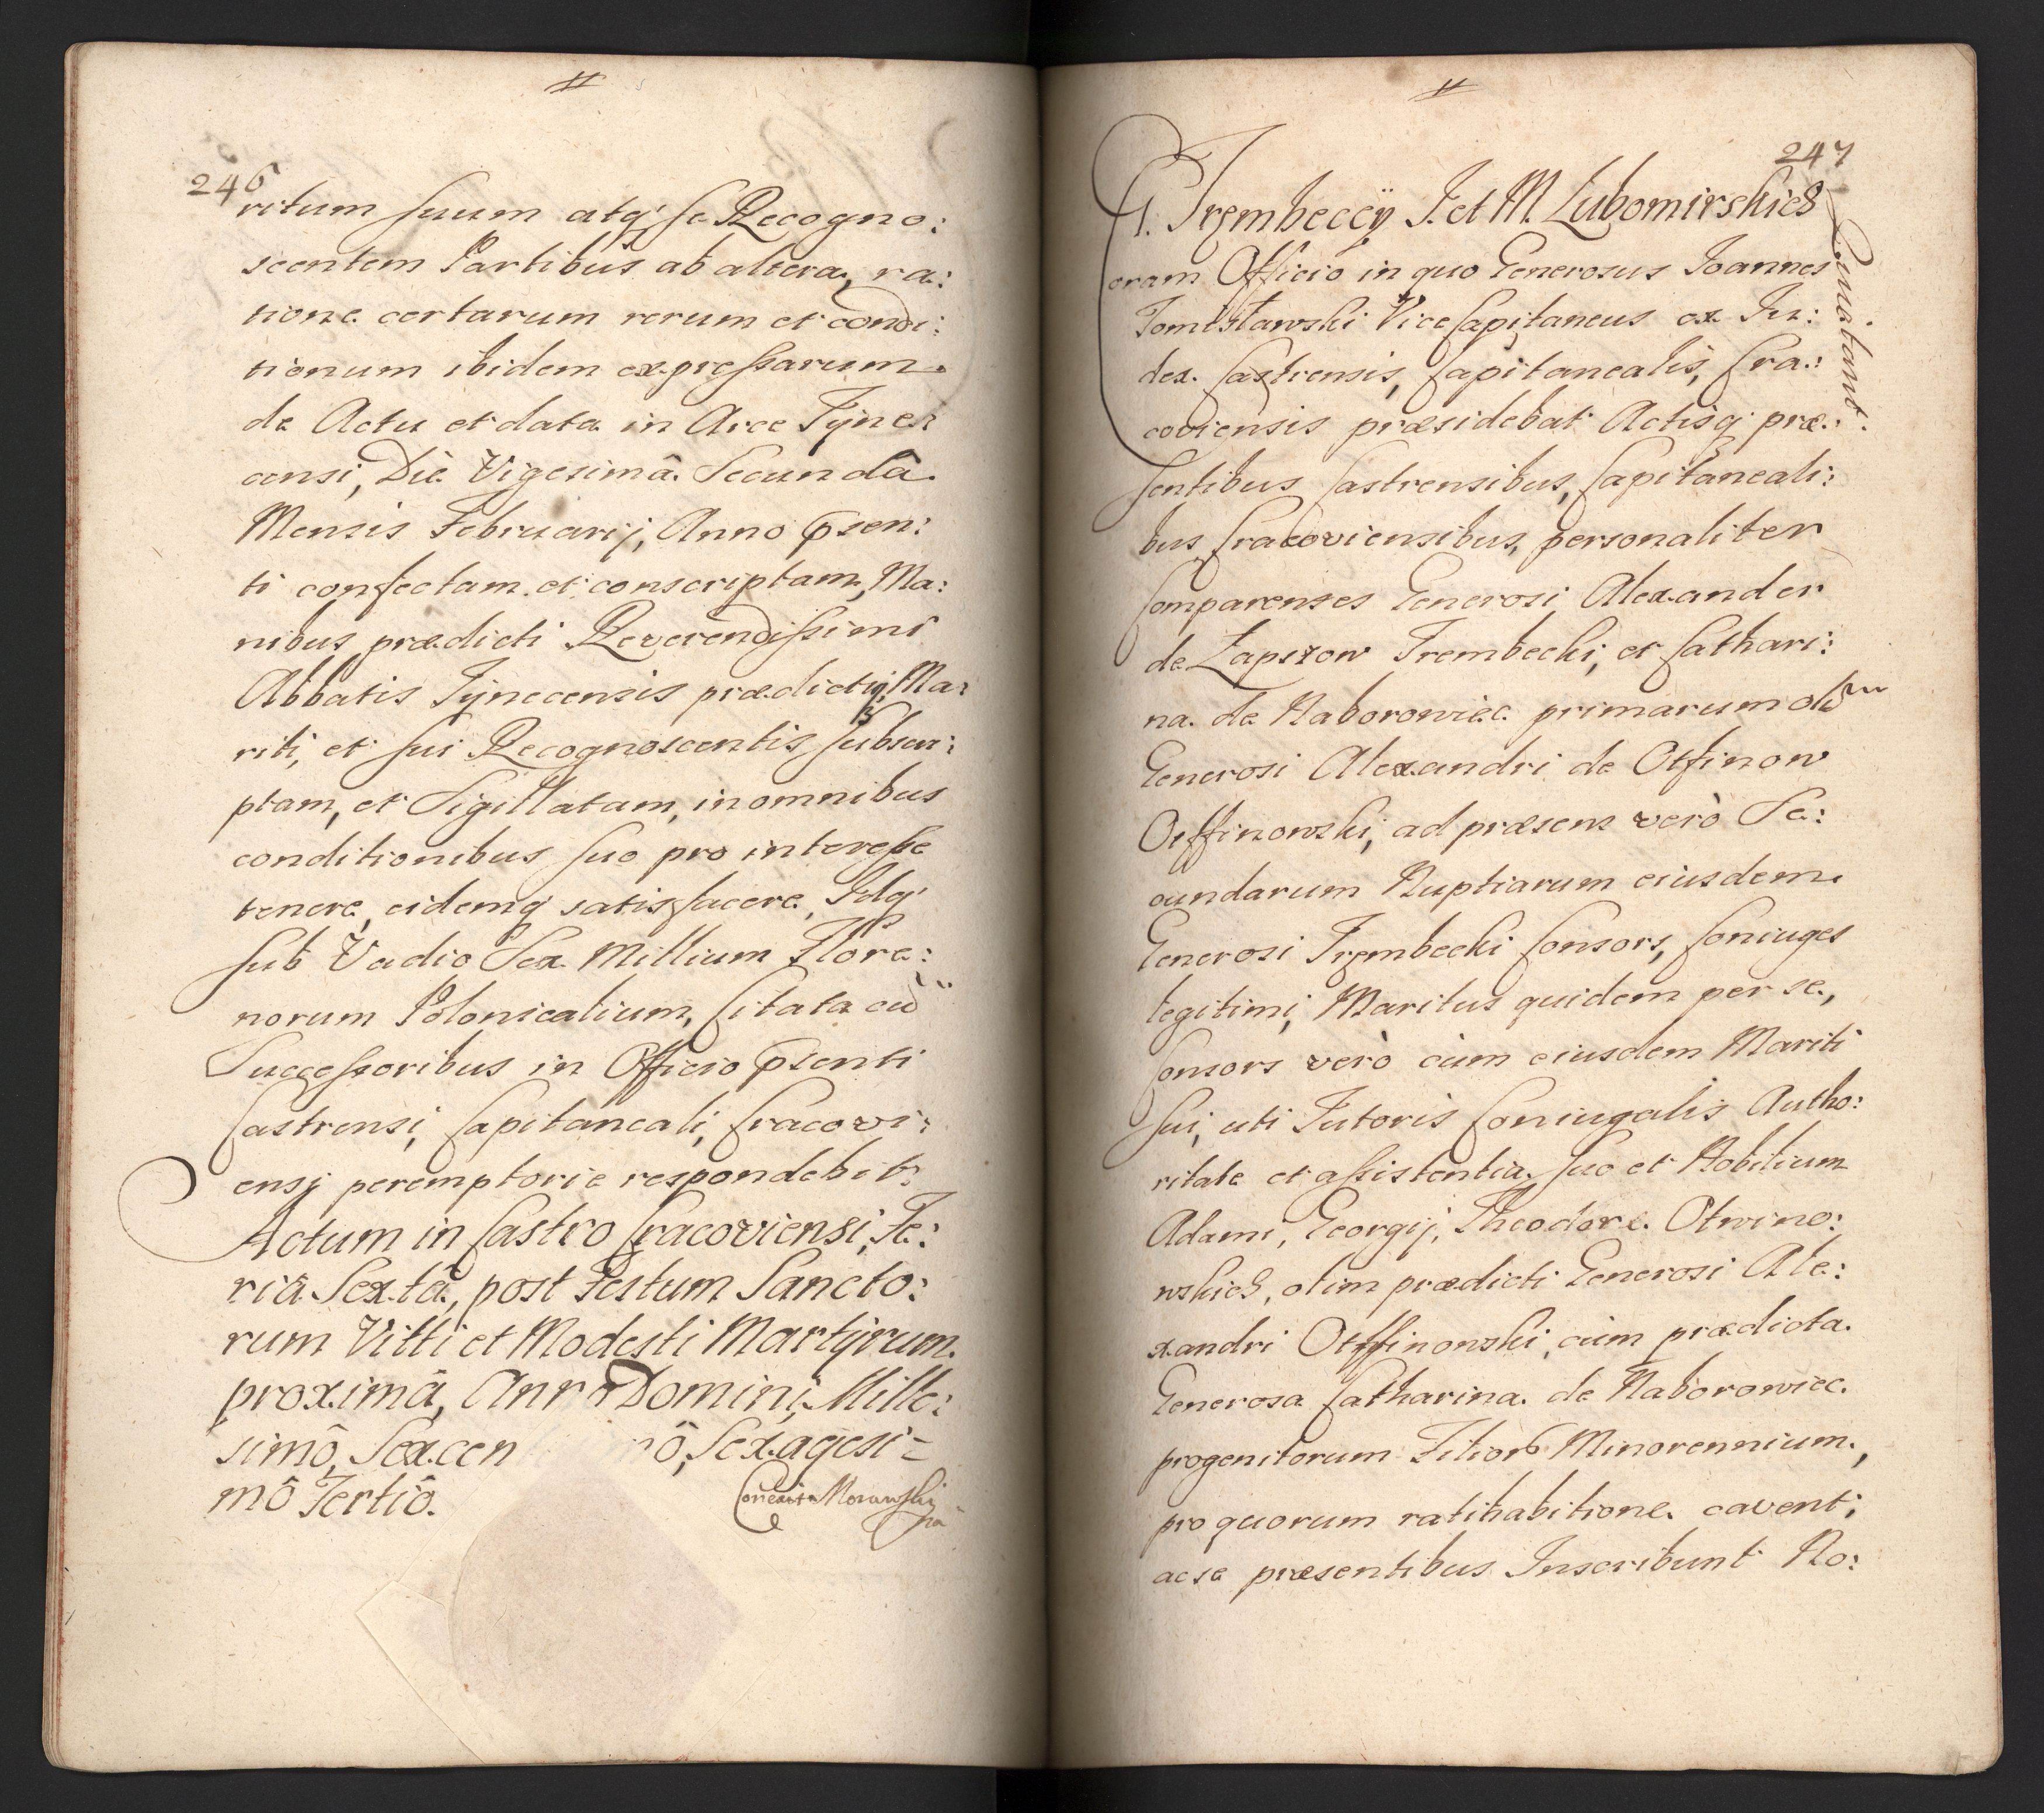 246
ritum suum atq; se Recogno:
scentem Partibus ab altera, ra:
tione certarum rerum et condi:
tionum ibidem expressarum
de Actu et data in Arce Tÿne:
censi, Die Vigesimâ Secundâ
Mensis Februarij, Anno psen:
ti confectam et conscriptam, Ma:
nibus prædicti Reverendissimi
Abbatis Tÿnecensis prædictiq; Ma:
riti, et sui Recognoscentis subscri:
ptam, et Sigillatam, in omnibus
conditionibus suo pro interesse
tenere, eidemq; satisfacere, Idq;
sub Vadio Sex Millium Flore:
norum Polonicalium, Citata cu
Successoribus in Officio psenti
Castrensi, Capitaneali, Cracovi:
ensi peremptorie respondebit.
Actum in Castro Cracoviensi, Fe:
riâ Sextâ, post Festum Sancto:
rum Vitti et Modesti Martÿrum
proximâ, Anno Domini, Mille:
simô, Sexcen nô, Sexagesi=
mô Tertiô.
Morawski
247
G. Trembeccÿ I. et M. Lubomirskich
Quietant.
oram Officio in quo Generosus Joannes
Tomisławski Vice Capitaneus ex Ju:
dex Castrensis, Capitanealis, Cra:
coviensis præsidebat Actisq; præ:
sentibus Castrensibus, Capitaneali:
bus Cracoviensibus, personaliter
Comparentes Generosi Alexander
de Łapszow Trembecki, et Cathari:
na de Naborowiec primarum
Generosi Alexandri de Otfinow
Otffinowski, ad præsens verò Se:
cundarum Nuptiarum eiusdem
Generosi Trembecki Consors, Coniuges
legitimi, Maritus quidem per se,
Consors verò cum eiusdem Mariti
sui, uti Tutoris Coniugalis Autho:
ritate et assistentia suo et Nobilium
Adami, Georgij, Theodore Otwino:
wskich, olim prædicti Generosi Ale:
xandri Otffinowski, cum prædicta
Generosa Catharina de Naborowiec
progenitorum Filiorũ Minorennium,
pro quorum ratihabitione cavent,
ac se præsentibus Inscribunt No: